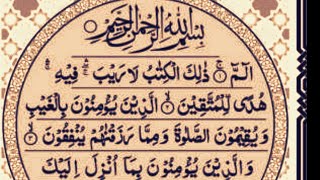 بِسْمِ اللهِ الرَّحْمٰنِ الرَّحِيْمِ
الٓمّٓ ۚ ذٰلِكَ الْكِتٰبُ لَا رَيْبَ ۛ فِيْهِ ۛ
هُدًى لِّلْمُتَّقِيْنَ الَّذِيْنَ يُؤْمِنُوْنَ بِالْغَيْبِ
وَيُقِيْمُوْنَ الصَّلٰوةَ وَمِمَّا رَزَقْنٰهُمْ يُنْفِقُوْنَ
وَالَّذِيْنَ يُؤْمِنُوْنَ بِمَا اُنْزِلَ اِلَيْكَ